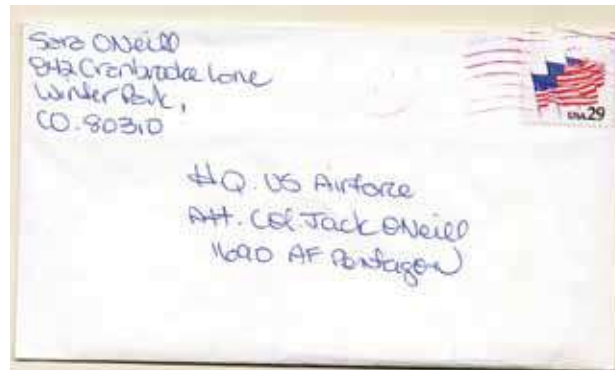 Sara ONeill
842 Cranbrooke Lane
Winter Park,
CO. 80310
USA 29
HQ. US Airforce
Att. Col Jack ONeill
1690 AF Pentagon